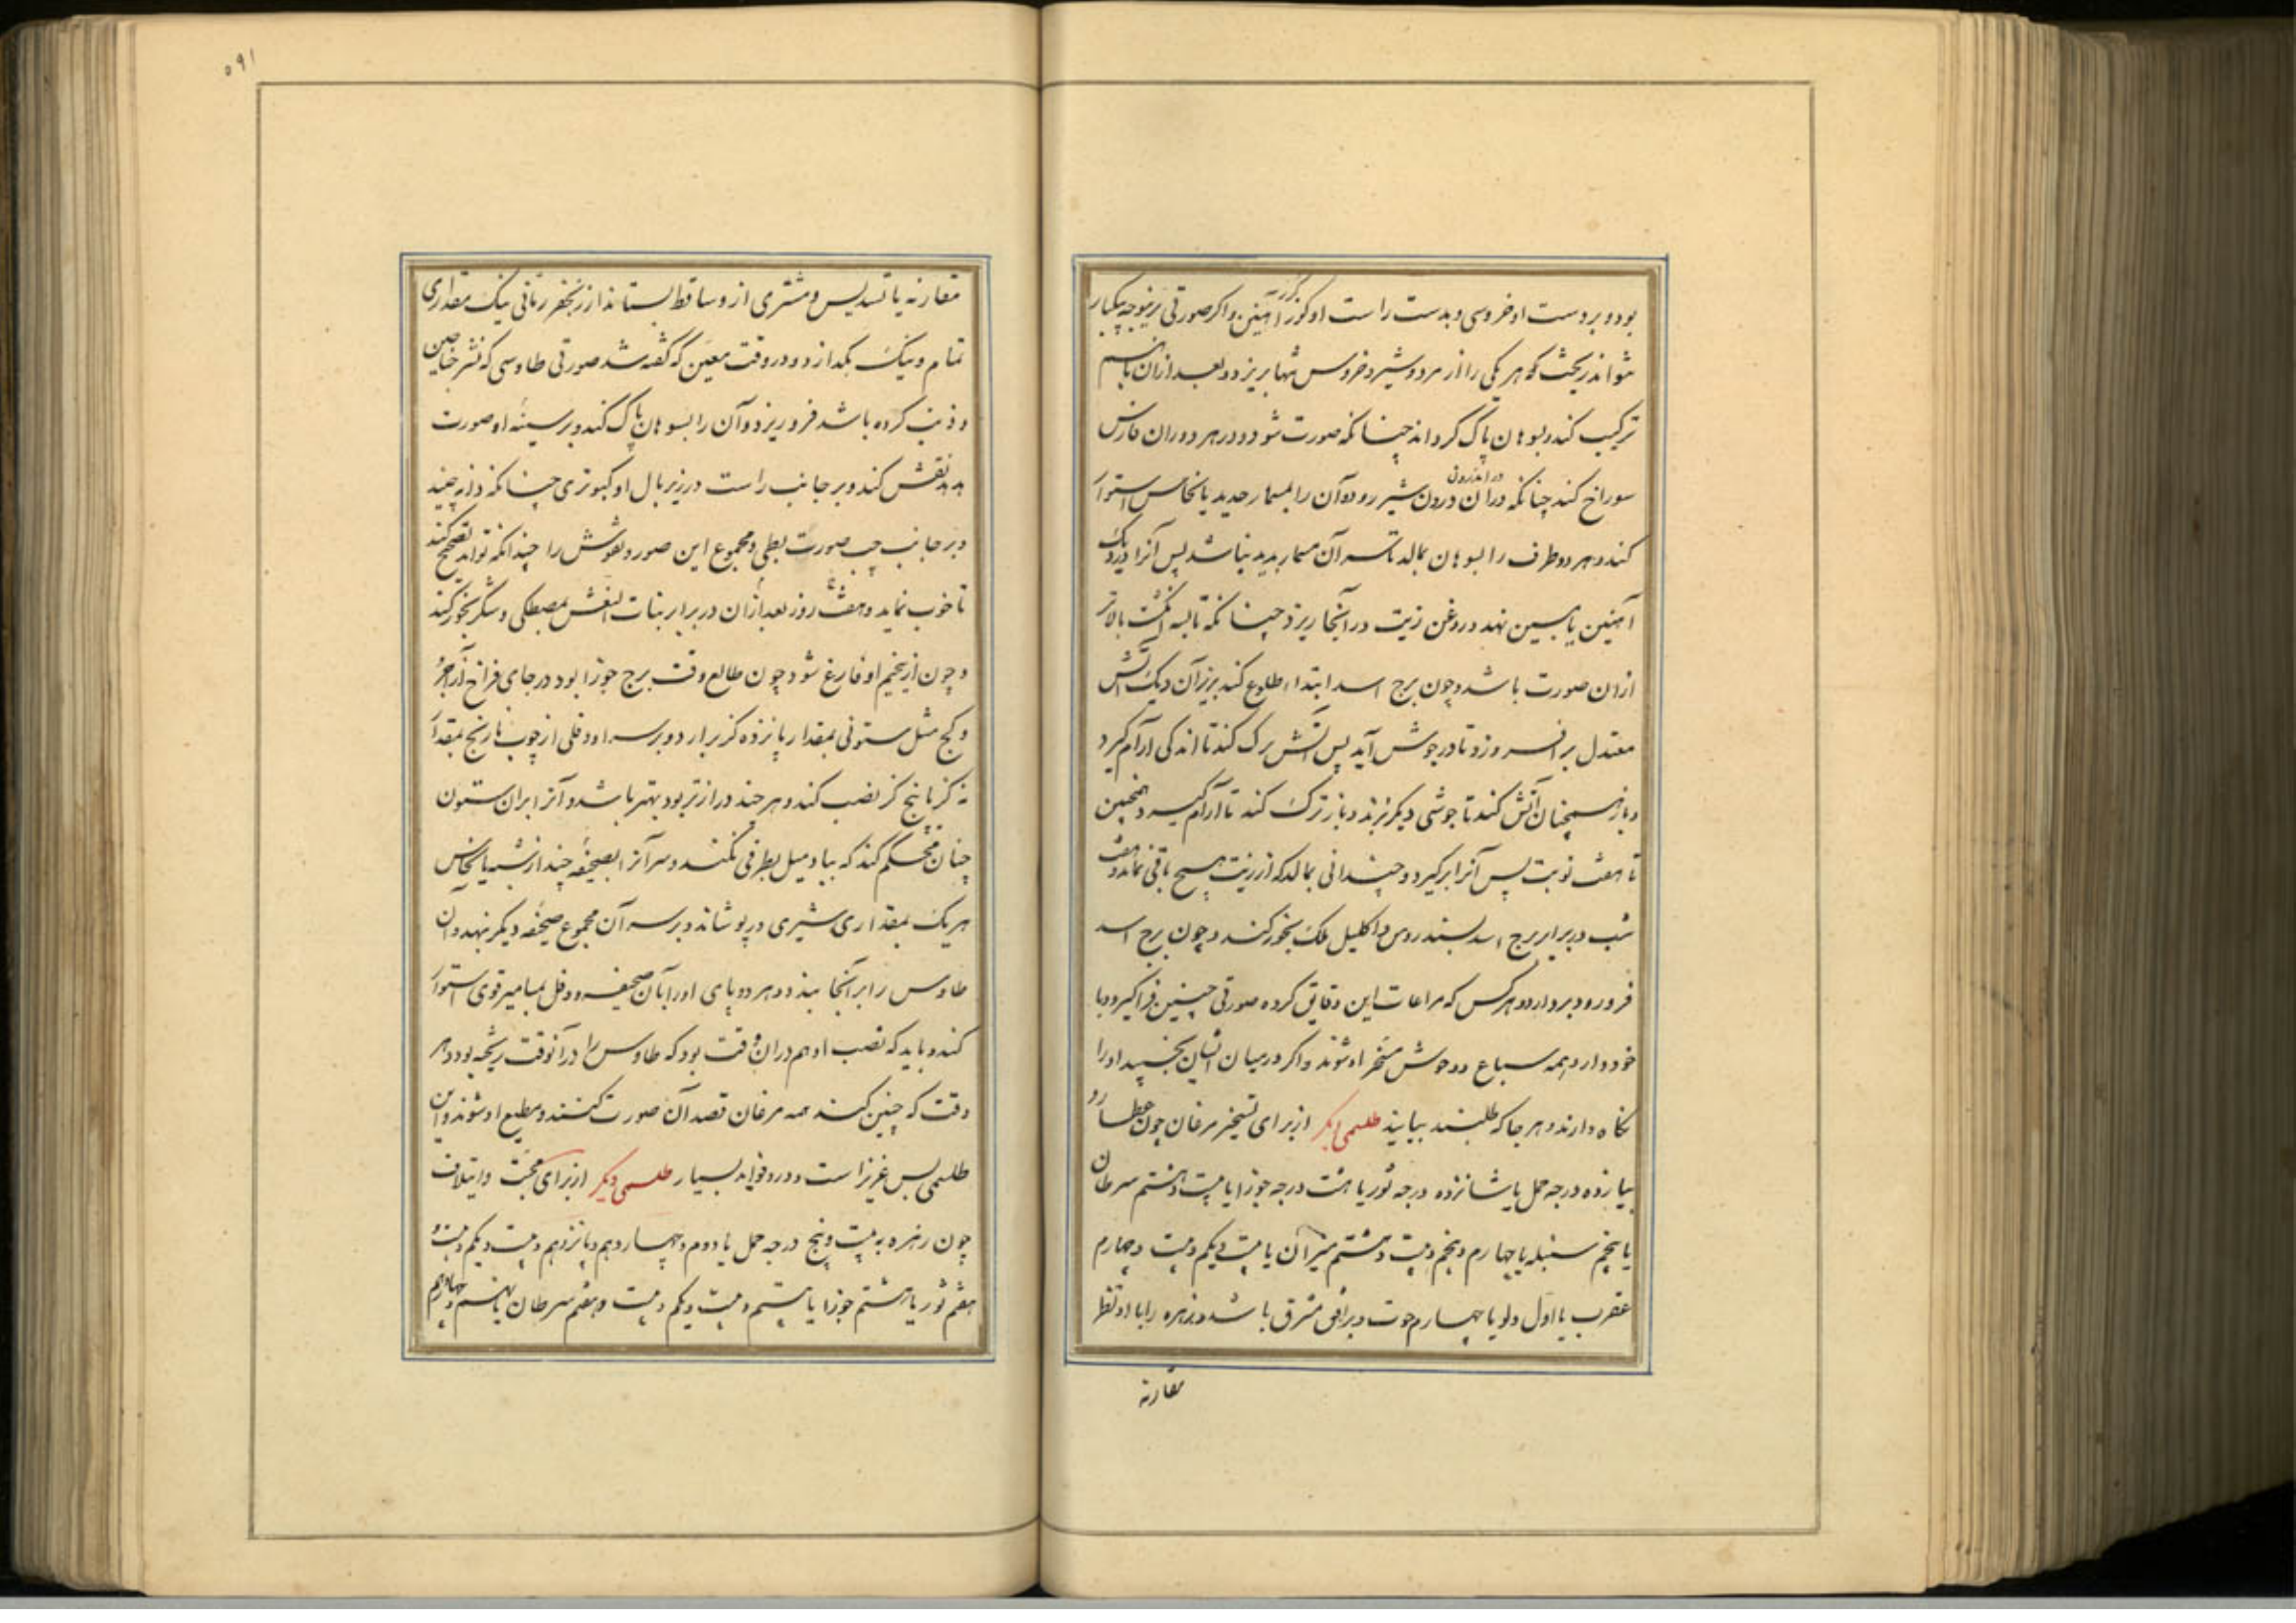 بود و بر دست او خروسی و بدست راست او گرز آهنین و اگر صورتی برینوجه یکبار
نتواند ریخت هر یکی را از مرد و شیر و خروس تنها بریزد و بعد ازان باهم
ترکیب کند و بسوهان پاک گرداند چنانکه صورت شود و در هر دو ران فارس
سوراخ کند چنانکه دران درون شیر رود و آن را بمسمار حدید یا نحاس استوار
در اندرون
کند و هر دو طرف را بسوهان بمالد تا سر آن مسمار پدید نباشد پس آنرا در دیک
آهنین یا مسین نهد و روغن زیت در آنجا ریزد چنانکه تا سه انگشت بالاتر
ازان صورت باشد و چون برج اسد ابتداء طلوع کند بزیر آن دیک آتش
معتدل بر افروزد تا در جوش آید پس آتش ترک کند تا اندکی آرام گیرد
و باز همچنان آتش کند تا جوشی دیگر بزند و باز ترک کند تا آرام گیرد و همچنین
تا هفت نوبت پس آنرا بر گیرد و چندانی بمالد که از زیت هیچ باقی نماند و هفت
شب در برابر برج اسد بسندروس و اکلیل ملک بخور کند و چون برج اسد
فرو رود بردارد و هر کس که مراعات این دقایق کرده صورتی چنین فرا گیرد و با
خود دارد همه سباع و وحوش مسخر او شوند و اگر در میان ایشان بخسپد او را
نگاه دارند و هر جا که طلبند بیابند طلسمی دیگر از برای تسخیر مرغان چون عطارد
بیازده درجه حمل یا شانزده درجه ثور یا هشت درجه جوزا یا بیست و هشتم سرطان
یا پنجم سنبله یا چهارم و پنجم و بیست و هشتم میزان یا بیست و یکم و بیست و چهارم
عقرب یا اول دلو یا چهارم حوت و بر افق مشرق باشد و زهره را با او نظر
مقارنه
۵۹۱
مقارنه یا تسدیس و مشتری ازو ساقط بستاند از زنجفر رمانی نیک مقداری
تمام و نیک بگدازد و در وقت معین که گفته شد صورتی طاوسی که نشر جناحین
و ذنب کرده باشد فرو ریزد و آن را بسوهان پاک کند و بر سینه او صورت
هدهد نقش کند و بر جانب راست در زیر بال او کبوتری چنانکه دانه چیند
و بر جانب چپ صورت بطی و مجموع این صور و نقوش را چندانکه تواند تصحیح کند
تا خوب نماید و هفت روز بعد ازان در برابر بنات النعش بمصطکی و شکر بخور کند
و چون از تنجیم او فارغ شود چون طالع وقت برج جوزا بود در جای فراخ از آجر
و گچ مثل ستونی بمقدار پانزده گز برآرد و بر سر او دقلی از چوب نارنج بمقدار
نه گز یا پنج گز نصب کند و هر چند درازتر بود بهتر باشد و آنرا بران ستون
چنان محکم کند که بباد میل بطرفی نکند و سر آنرا بصحیفه چند از شبه یا نحاس
هر یک بمقداری شبری در پوشاند و بر سر آن مجموع صحیفه دیگر نهد و آن
طاوس را بر آنجا نهد و هر دو پای او را بآن صحیفه و دقل بمسامیر قوی استوار
کند و باید که نصب او هم دران وقت بود که طاوس را در آنوقت ریخته بود و هر
وقت که چنین کنند همه مرغان قصد آن صورت کنند و مطیع او شوند و این
طلسمی بس عزیز است و درو فواید بسیار طلسمی دیگر از برای محبت و ایتلاف
چون زهره به بیست و پنج درجه حمل یا دوم و چهاردهم و پانزدهم و بیست و یکم و بیست و
هفتم ثور یا هشتم جوزا یا هشتم و بیست و یکم و بیست و هفتم سرطان یا نهم و چهاردهم